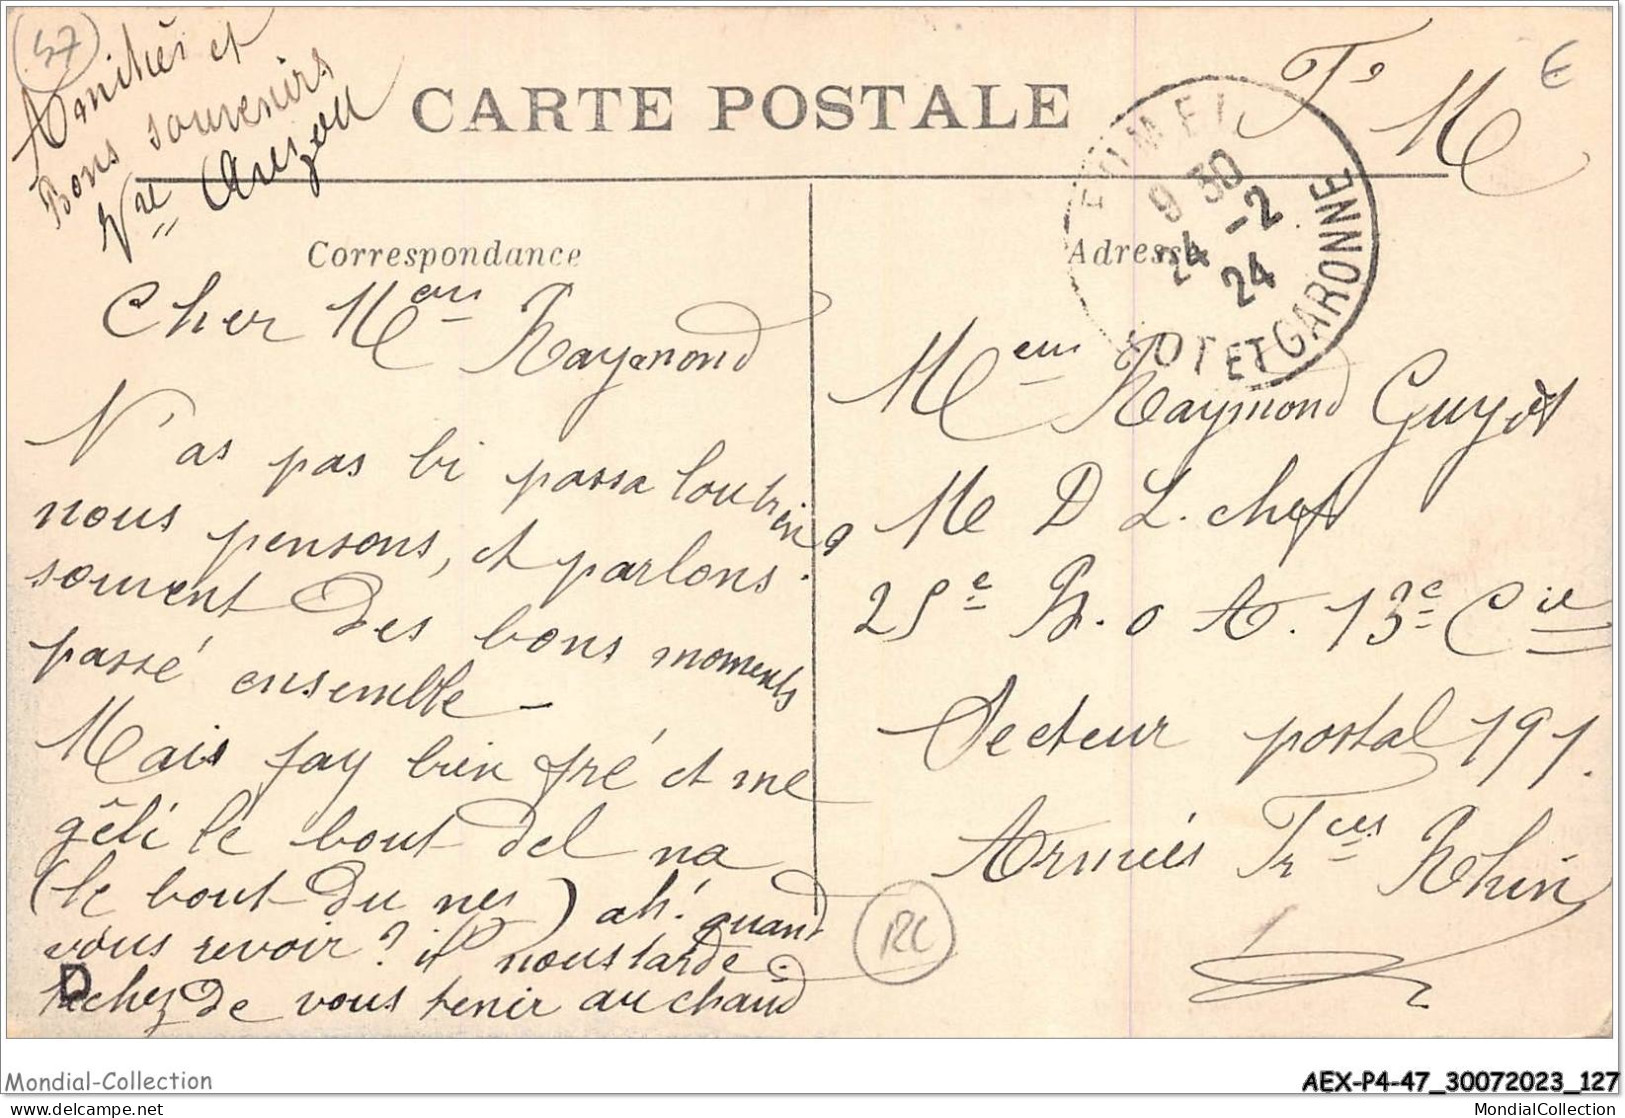 47
Amitiés et
Bons souvenirs
Vre
CARTE POSTALE
Fs M
€
FUMEL
9 30
24 -2
24
LOT ET GARONNE
Correspondance
Adresse
Cher Meur Raymond
N'as pas bi passa
nous pensons, et parlons
souvent des bons moments
passé ensemble —
Mais fay bien fré et me
gêli lé bout del na
(le bout du nes) ah! quand
vous revoir? il nous tarde.
tachez de vous tenir au chaud
D
Meur Raymond Guyot
Me D L. chef
25e B. o A. 13e Cie
Secteur postal 191.
Armées Frces Rhin
RC
Mondial-Collection
AEX-P4-47_30072023_127
delcampe.net
MondialCollection